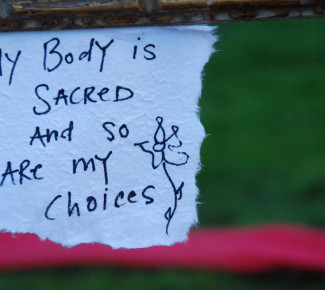 My Body is
SACRED
AND so
ARe my
choices